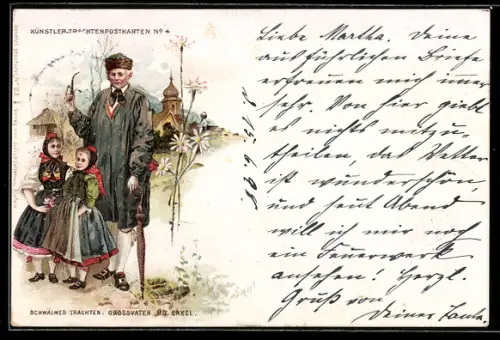 KÜNSTLER-TRACHTENPOSTKARTEN No 4
Liebe Martha. Deine
ausführlichen Briefe
erfreuen mich immer
sehr. Von hier giebt
es nichts mitzu-
theilen, das Wetter
ist wunderschön,
und heut Abend
will ich mir noch
ein Feuerwerk
ansehen! Herzl.
Gruß von
Deiner Tante.
SCHWÄLMER TRACHTEN: GROSSVATER MIT ENKEL.